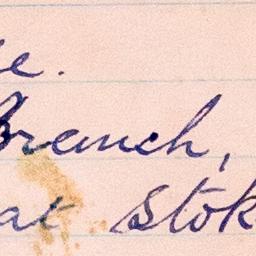 e.
Branch,
at Stok